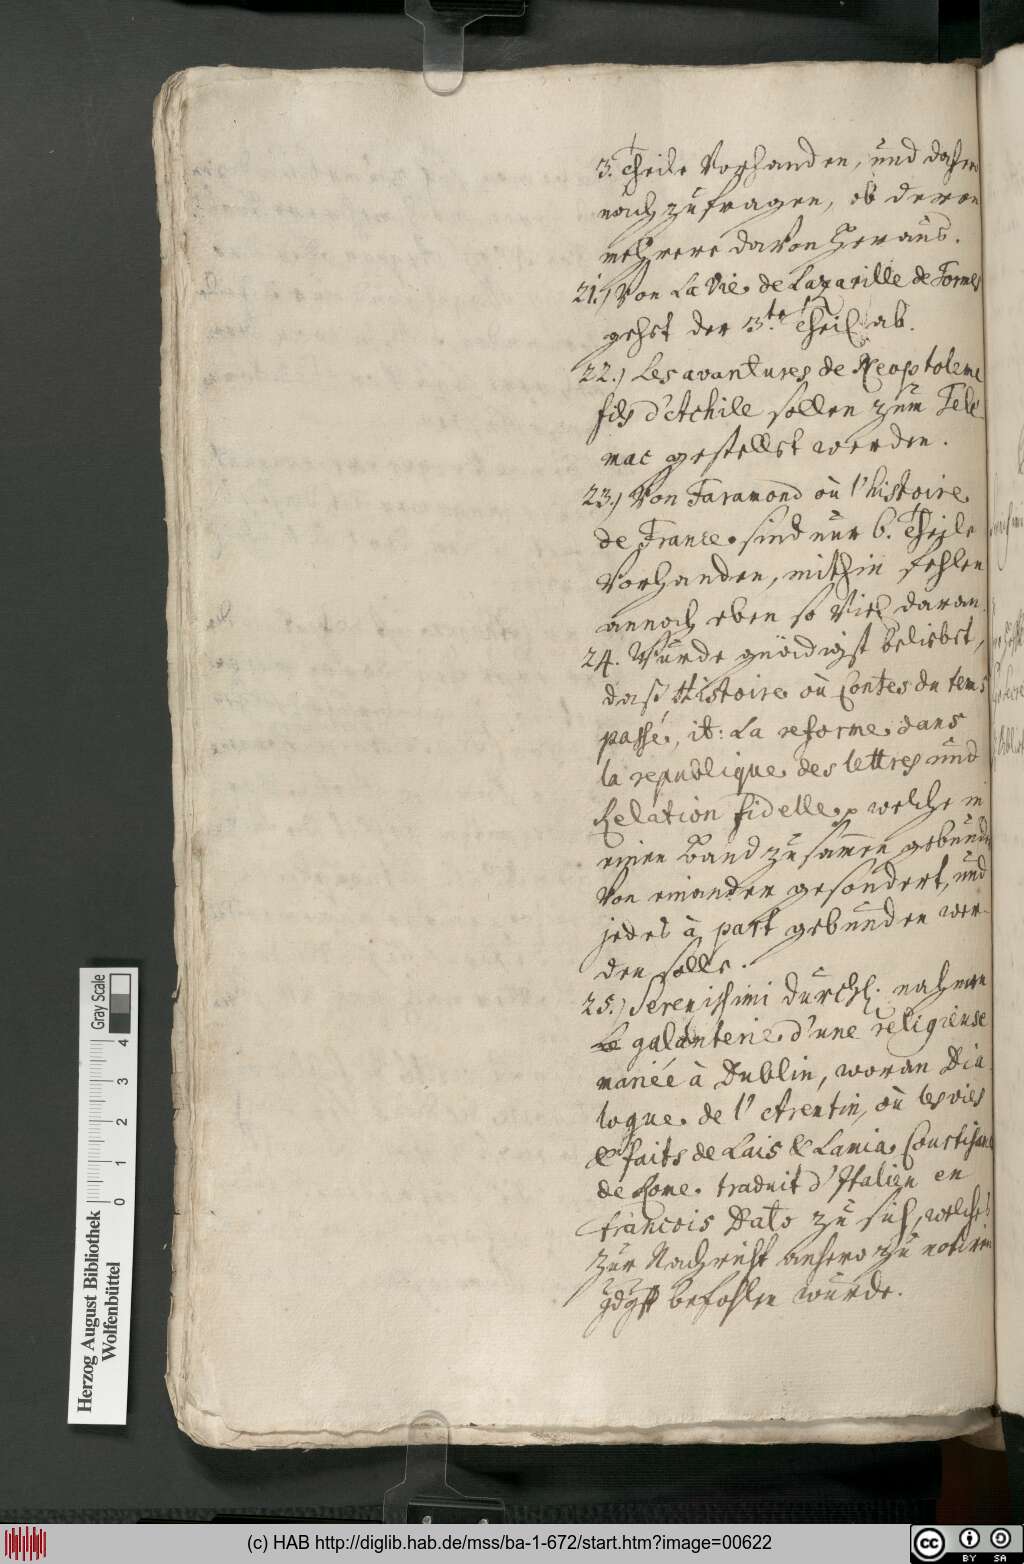 3. Theile vorhanden, und daher
nachzufragen, ob deren
mehrere davon heraus.
21.) Von La Vie de Lazarille de Tormes
gehet der 3.te Theil ab.
22.) Les avantures de Neoptoleme
fils d'Achile sollen zum Tele-
mac gestellet werden.
23.) Von Faramond où l'histoire
de France sind nur 6. Theile
vorhanden, mithin fehlen
annoch eben so viel daran.
24. Wurde gnädigst beliebet,
daß Histoire où Contes du tems
passé, it: La reforme dans
la republique des lettres und
Relation fidelle, welche in
einen Band zusamen gebunden
von einander gesondert, und
jedes à part gebunden wer-
den solle.
25.) Serenissimi Durchl. nahmen
La galanterie d'une religieuse
mariée à Dublin, woran Dia-
logue de l'Arentin, où les vies
& faits de Lais & Lamia Courtisanes
de Rome traduit d'Italien en
francois Dato zu sich, welches
zur Nachricht anhero zu notiren
gdgst befohlen wurde.
Herzog August Bibliothek
Wolfenbüttel
0 1 2 3 4
Gray Scale
(c) HAB http://diglib.hab.de/mss/ba-1-672/start.htm?image=00622
cc BY SA